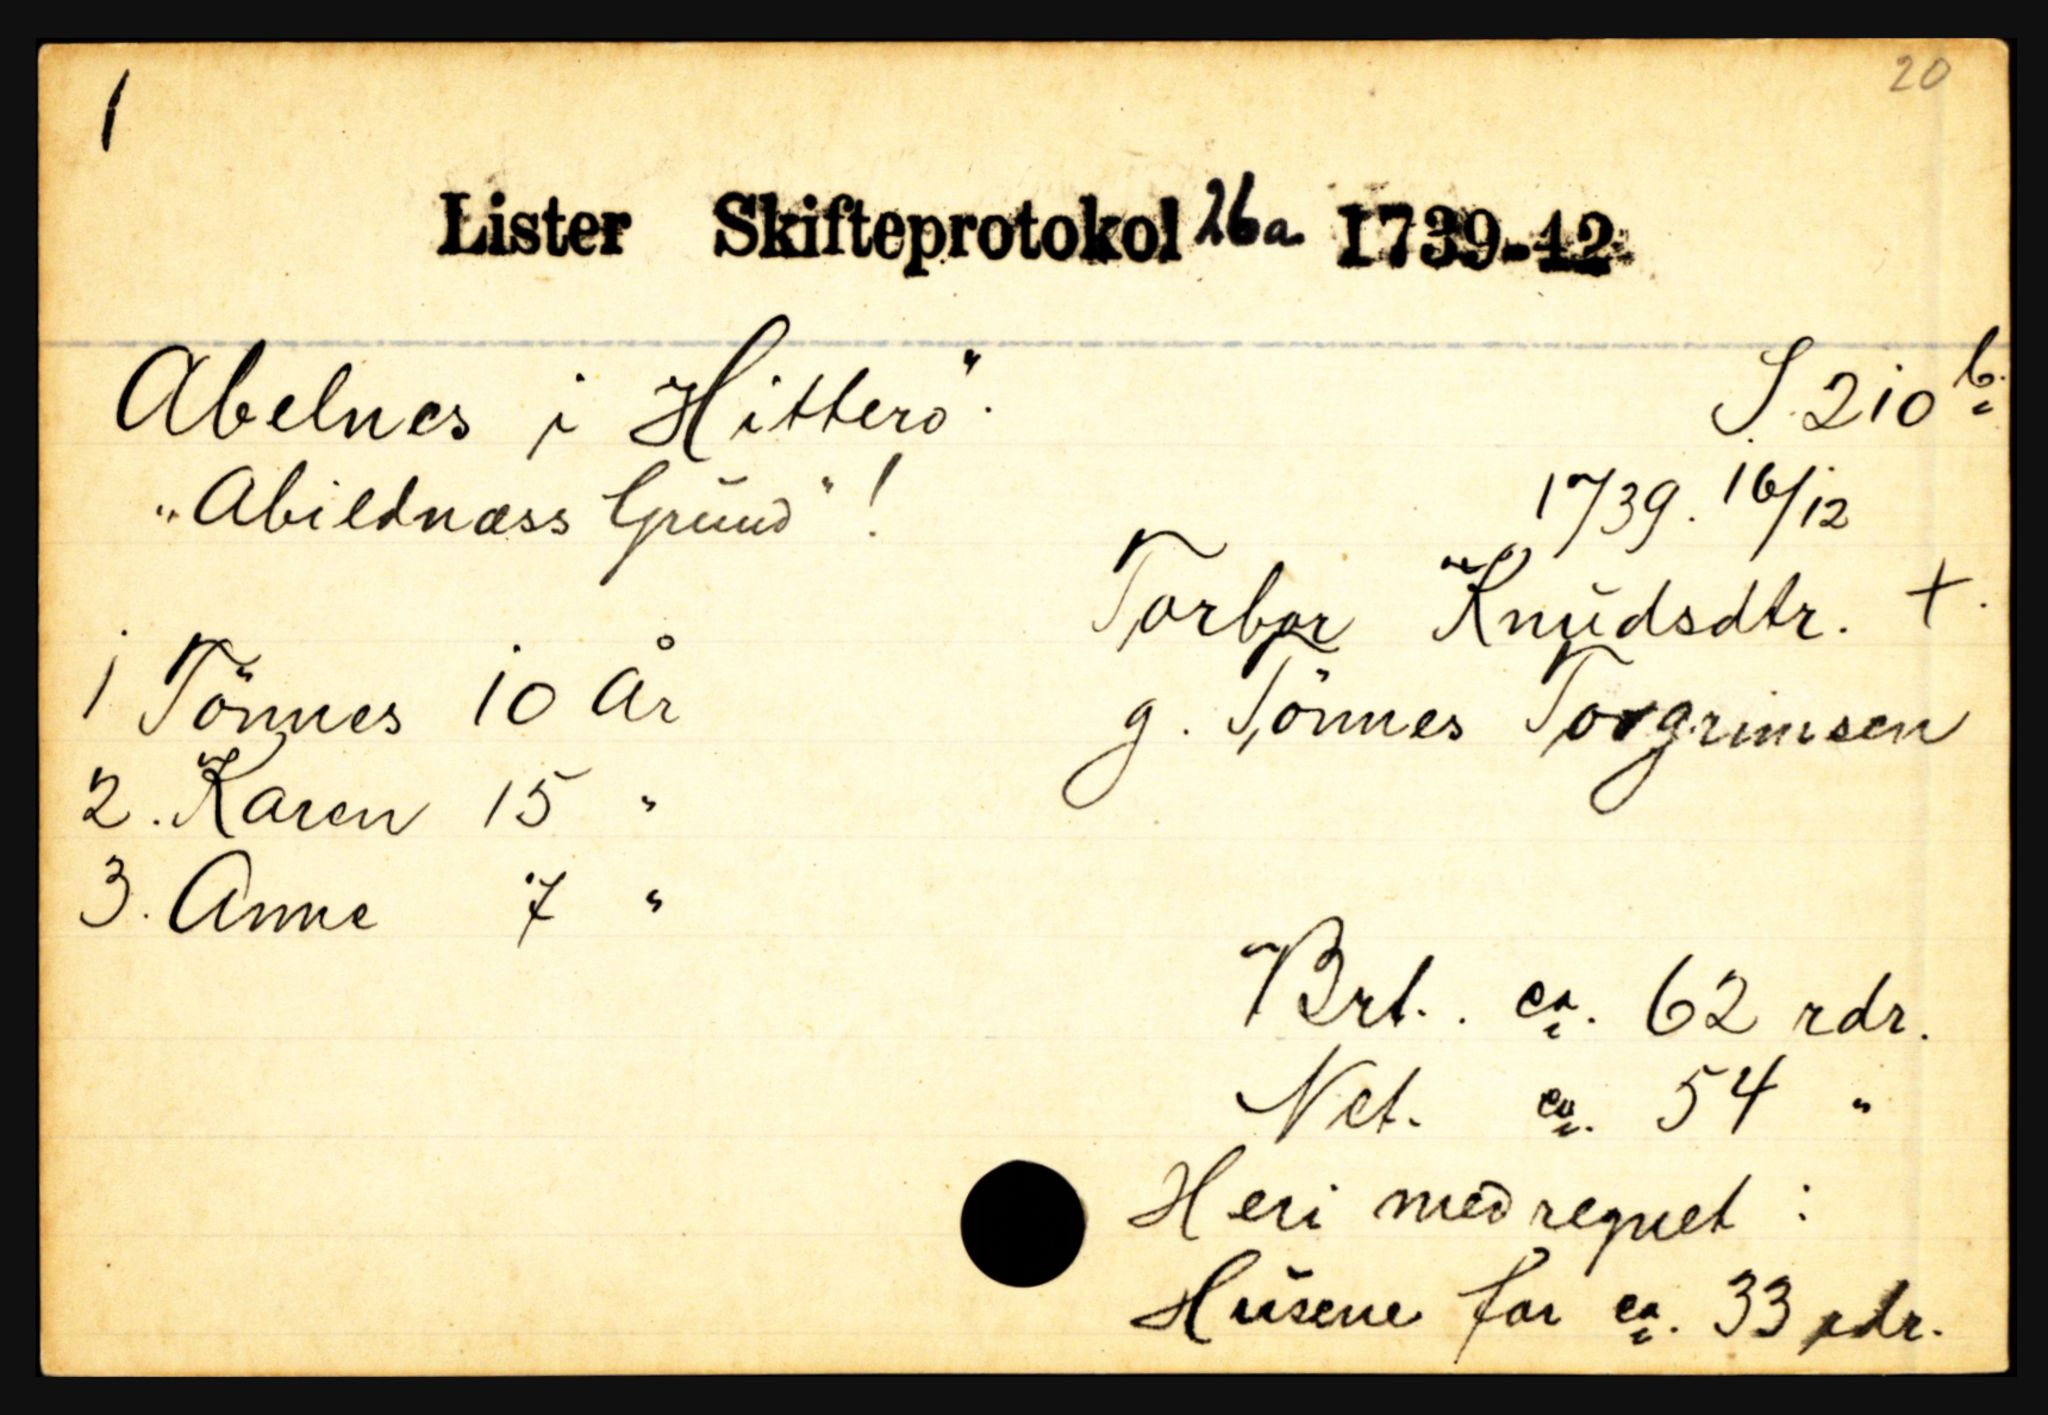 1
20
Lister Skifteprotokol 26a. 1739-42
Abelnes i Hitterö.
S. 210 b.
"Abildnæss Grund"!
1739. 16/12
Torbor Knudsdtr. +.
g. Tönnes Torgrimsen
1 Tönnes 10 År
2. Karen 15 "
3. Anne 7 "
Brt.. ca. 62 rdr.
Net. ca. 54 "
Heri medregnet :
Husene for ca. 33 rdr.